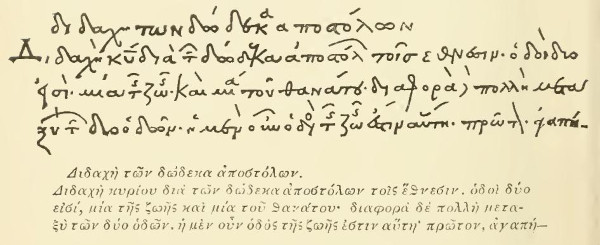 διδαχὴ τῶν δώδεκα ἀποστόλων
Διδαχὴ κῦ διὰ τῶν δώδεκα ἀποστόλων τοῖς ἔθνεσιν· ὁδοὶ δύο
εἰσί· μία τῆς ζωῆς καὶ μία τοῦ θανάτου· διαφορὰ δὲ πολλὴ μετα
ξὺ τῶν δύο ὁδῶν· ἡ μὲν οὖν ὁδὸς τῆς ζωῆς ἐστιν αὕτη· πρῶτον· ἀγαπή-
Διδαχὴ τῶν δώδεκα ἀποστόλων.
Διδαχὴ κυρίου διὰ τῶν δώδεκα ἀποστόλων τοῖς ἔθνεσιν. ὁδοὶ δύο
εἰσί, μία τῆς ζωῆς καὶ μία τοῦ θανάτου· διαφορὰ δὲ πολλὴ μετα-
ξὺ τῶν δύο ὁδῶν. ἡ μὲν οὖν ὁδὸς τῆς ζωῆς ἐστιν αὕτη· πρῶτον, ἀγαπή—